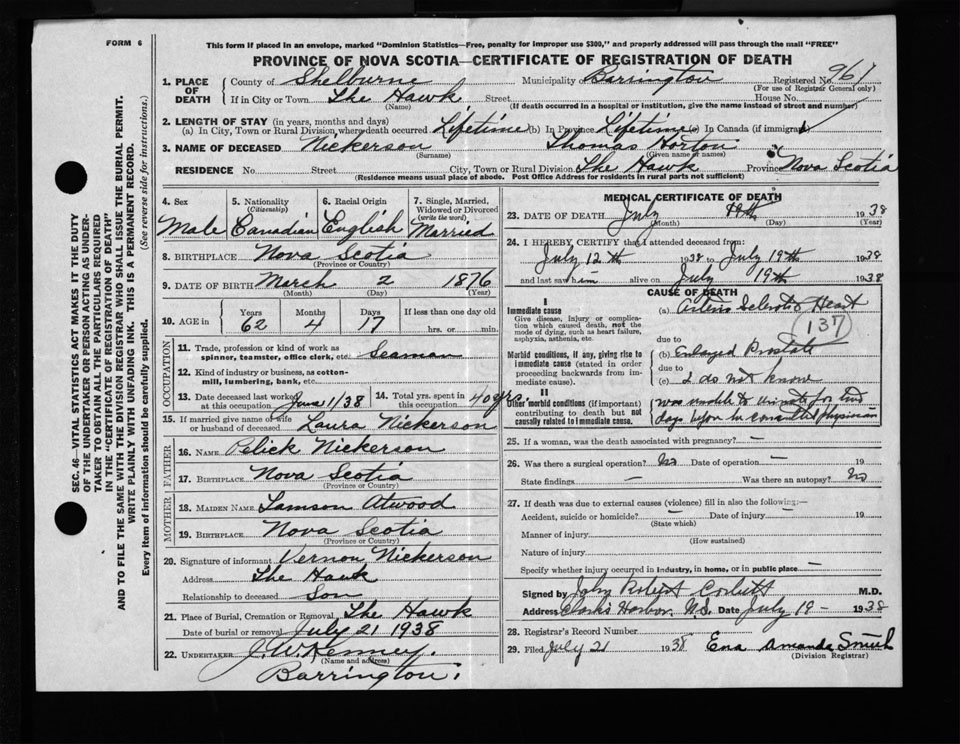 FORM 6
This form if placed in an envelope, marked "Dominion Statistics—Free, penalty for improper use $300," and properly addressed will pass through the mail "FREE"
PROVINCE OF NOVA SCOTIA—CERTIFICATE OF REGISTRATION OF DEATH
1. PLACE OF DEATH County of Shelburne Municipality Barrington Registered No. 967
(For use of Registrar General only)
If in City or Town The Hawk Street House No.
(Name) (If death occurred in a hospital or institution, give the name instead of street and number)
2. LENGTH OF STAY (in years, months and days)
(a) In City, Town or Rural Division where death occurred Lifetime (b) In Province Lifetime (c) In Canada (if immigrant)
3. NAME OF DECEASED Nickerson Thomas Horton
(Surname) (Given name or names)
RESIDENCE No. Street City, Town or Rural Division The Hawk Province Nova Scotia
(Residence means usual place of abode. Post Office Address for residents in rural parts not sufficient)
SEC. 46—VITAL STATISTICS ACT MAKES IT THE DUTY
OF THE UNDERTAKER OR PERSON ACTING AS UNDER-
TAKER TO OBTAIN ALL THE PARTICULARS REQUIRED
IN THE "CERTIFICATE OF REGISTRATION OF DEATH"
AND TO FILE THE SAME WITH THE DIVISION REGISTRAR WHO SHALL ISSUE THE BURIAL PERMIT.
WRITE PLAINLY WITH UNFADING INK. THIS IS A PERMANENT RECORD.
Every item of information should be carefully supplied. (See reverse side for instructions.)
4. Sex 5. Nationality (Citizenship) 6. Racial Origin 7. Single, Married, Widowed or Divorced (write the word)
Male Canadian English Married
8. BIRTHPLACE Nova Scotia
(Province or Country)
9. DATE OF BIRTH March 2 1876
(Month) (Day) (Year)
10. AGE in Years Months Days If less than one day old
62 4 17 hrs. or min.
OCCUPATION
11. Trade, profession or kind of work as spinner, teamster, office clerk, etc. Seaman
12. Kind of industry or business, as cotton-mill, lumbering, bank, etc.
13. Date deceased last worked at this occupation June 1/38 14. Total yrs. spent in this occupation 40 yrs.
15. If married give name of wife or husband of deceased Laura Nickerson
FATHER
16. NAME Pelick Nickerson
17. BIRTHPLACE Nova Scotia
(Province or Country)
MOTHER
18. MAIDEN NAME Tamson Atwood
19. BIRTHPLACE Nova Scotia
(Province or Country)
20. Signature of informant Vernon Nickerson
Address The Hawk
Relationship to deceased Son
21. Place of Burial, Cremation or Removal The Hawk
Date of burial or removal July 21 1938
22. UNDERTAKER J. W. Kenney.
(Name and address)
Barrington.
MEDICAL CERTIFICATE OF DEATH
23. DATE OF DEATH July 19th 1938
(Month) (Day) (Year)
24. I HEREBY CERTIFY that I attended deceased from:
July 12th 1938 to July 19th 1938
and last saw him alive on July 19th 1938
CAUSE OF DEATH
I
Immediate cause (a) Arterio Sclerotic Heart
Give disease, injury or complication which caused death, not the mode of dying, such as heart failure, asphyxia, asthenia, etc.
137
due to
Morbid conditions, if any, giving rise to immediate cause (stated in order proceeding backwards from immediate cause). (b) Enlarged Prostate
due to
(c) I do not know
II
Other morbid conditions (if important) contributing to death but not causally related to immediate cause. was unable to urinate for
days before he consulted physician
25. If a woman, was the death associated with pregnancy? —
26. Was there a surgical operation? No Date of operation — 19
State findings — Was there an autopsy? No
27. If death was due to external causes (violence) fill in also the following:—
Accident, suicide or homicide? — Date of injury — 19
(State which)
Manner of injury
(How sustained)
Nature of injury
Specify whether injury occurred in industry, in home, or in public place —
Signed by John Robert Corbett M.D.
Address Clarks Harbor, N.S. Date July 19 – 1938
28. Registrar's Record Number
29. Filed July 21 1938 Ena Amanda Smith
(Division Registrar)